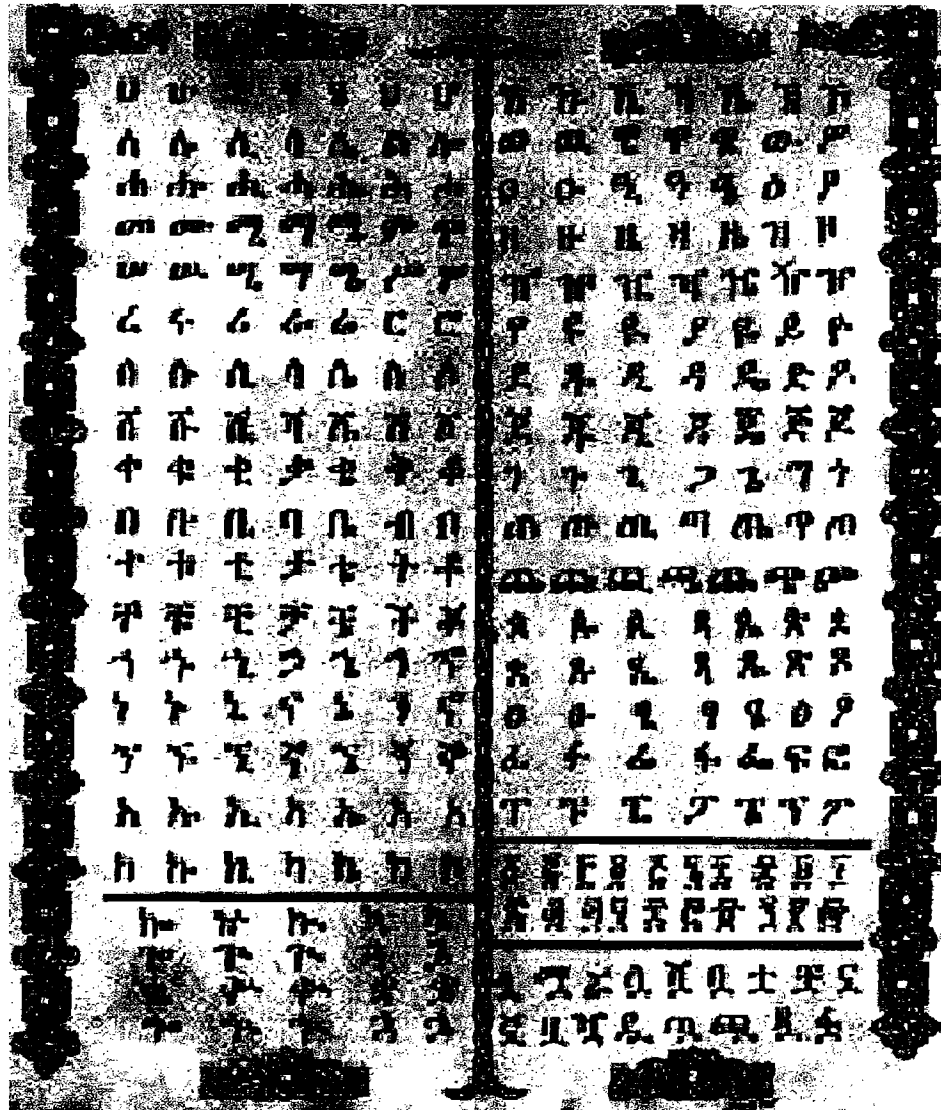 ሀ ሁ ሂ ሃ ሄ ህ ሆ
ለ ሉ ሊ ላ ሌ ል ሎ
ሐ ሑ ሒ ሓ ሔ ሕ ሖ
መ ሙ ሚ ማ ሜ ም ሞ
ሠ ሡ ሢ ሣ ሤ ሥ ሦ
ረ ሩ ሪ ራ ሬ ር ሮ
ሰ ሱ ሲ ሳ ሴ ስ ሶ
ሸ ሹ ሺ ሻ ሼ ሽ ሾ
ቀ ቁ ቂ ቃ ቄ ቅ ቆ
በ ቡ ቢ ባ ቤ ብ ቦ
ተ ቱ ቲ ታ ቴ ት ቶ
ቸ ቹ ቺ ቻ ቼ ች ቾ
ኀ ኁ ኂ ኃ ኄ ኅ ኆ
ነ ኑ ኒ ና ኔ ን ኖ
ኘ ኙ ኚ ኛ ኜ ኝ ኞ
አ ኡ ኢ ኣ ኤ እ ኦ
ከ ኩ ኪ ካ ኬ ክ ኮ
ኸ ኹ ኺ ኻ ኼ ኽ ኾ
ወ ዉ ዊ ዋ ዌ ው ዎ
ዐ ዑ ዒ ዓ ዔ ዕ ዖ
ዘ ዙ ዚ ዛ ዜ ዝ ዞ
ዠ ዡ ዢ ዣ ዤ ዥ ዦ
የ ዩ ዪ ያ ዬ ይ ዮ
ደ ዱ ዲ ዳ ዴ ድ ዶ
ጀ ጁ ጂ ጃ ጄ ጅ ጆ
ገ ጉ ጊ ጋ ጌ ግ ጎ
ጠ ጡ ጢ ጣ ጤ ጥ ጦ
ጨ ጩ ጪ ጫ ጬ ጭ ጮ
ጰ ጱ ጲ ጳ ጴ ጵ ጶ
ጸ ጹ ጺ ጻ ጼ ጽ ጾ
ፀ ፁ ፂ ፃ ፄ ፅ ፆ
ፈ ፉ ፊ ፋ ፌ ፍ ፎ
ፐ ፑ ፒ ፓ ፔ ፕ ፖ
፩ ፪ ፫ ፬ ፭ ፮ ፯ ፰ ፱ ፲
ሏ ሟ ሯ ሷ ሿ ቧ ቷ ቿ ኗ
ኟ ዟ ዧ ዷ ጧ ጯ ጿ ፏ